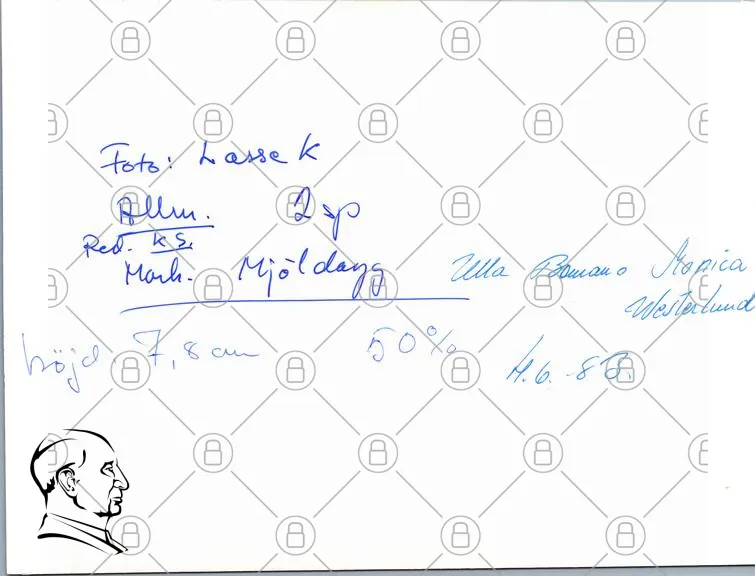 Foto: Lasse K
Allm. 2 sp
Red. K S.
Mark. Mjöldagg
Ulla Monica
Westerlund
höjd 7,8 cm 50%